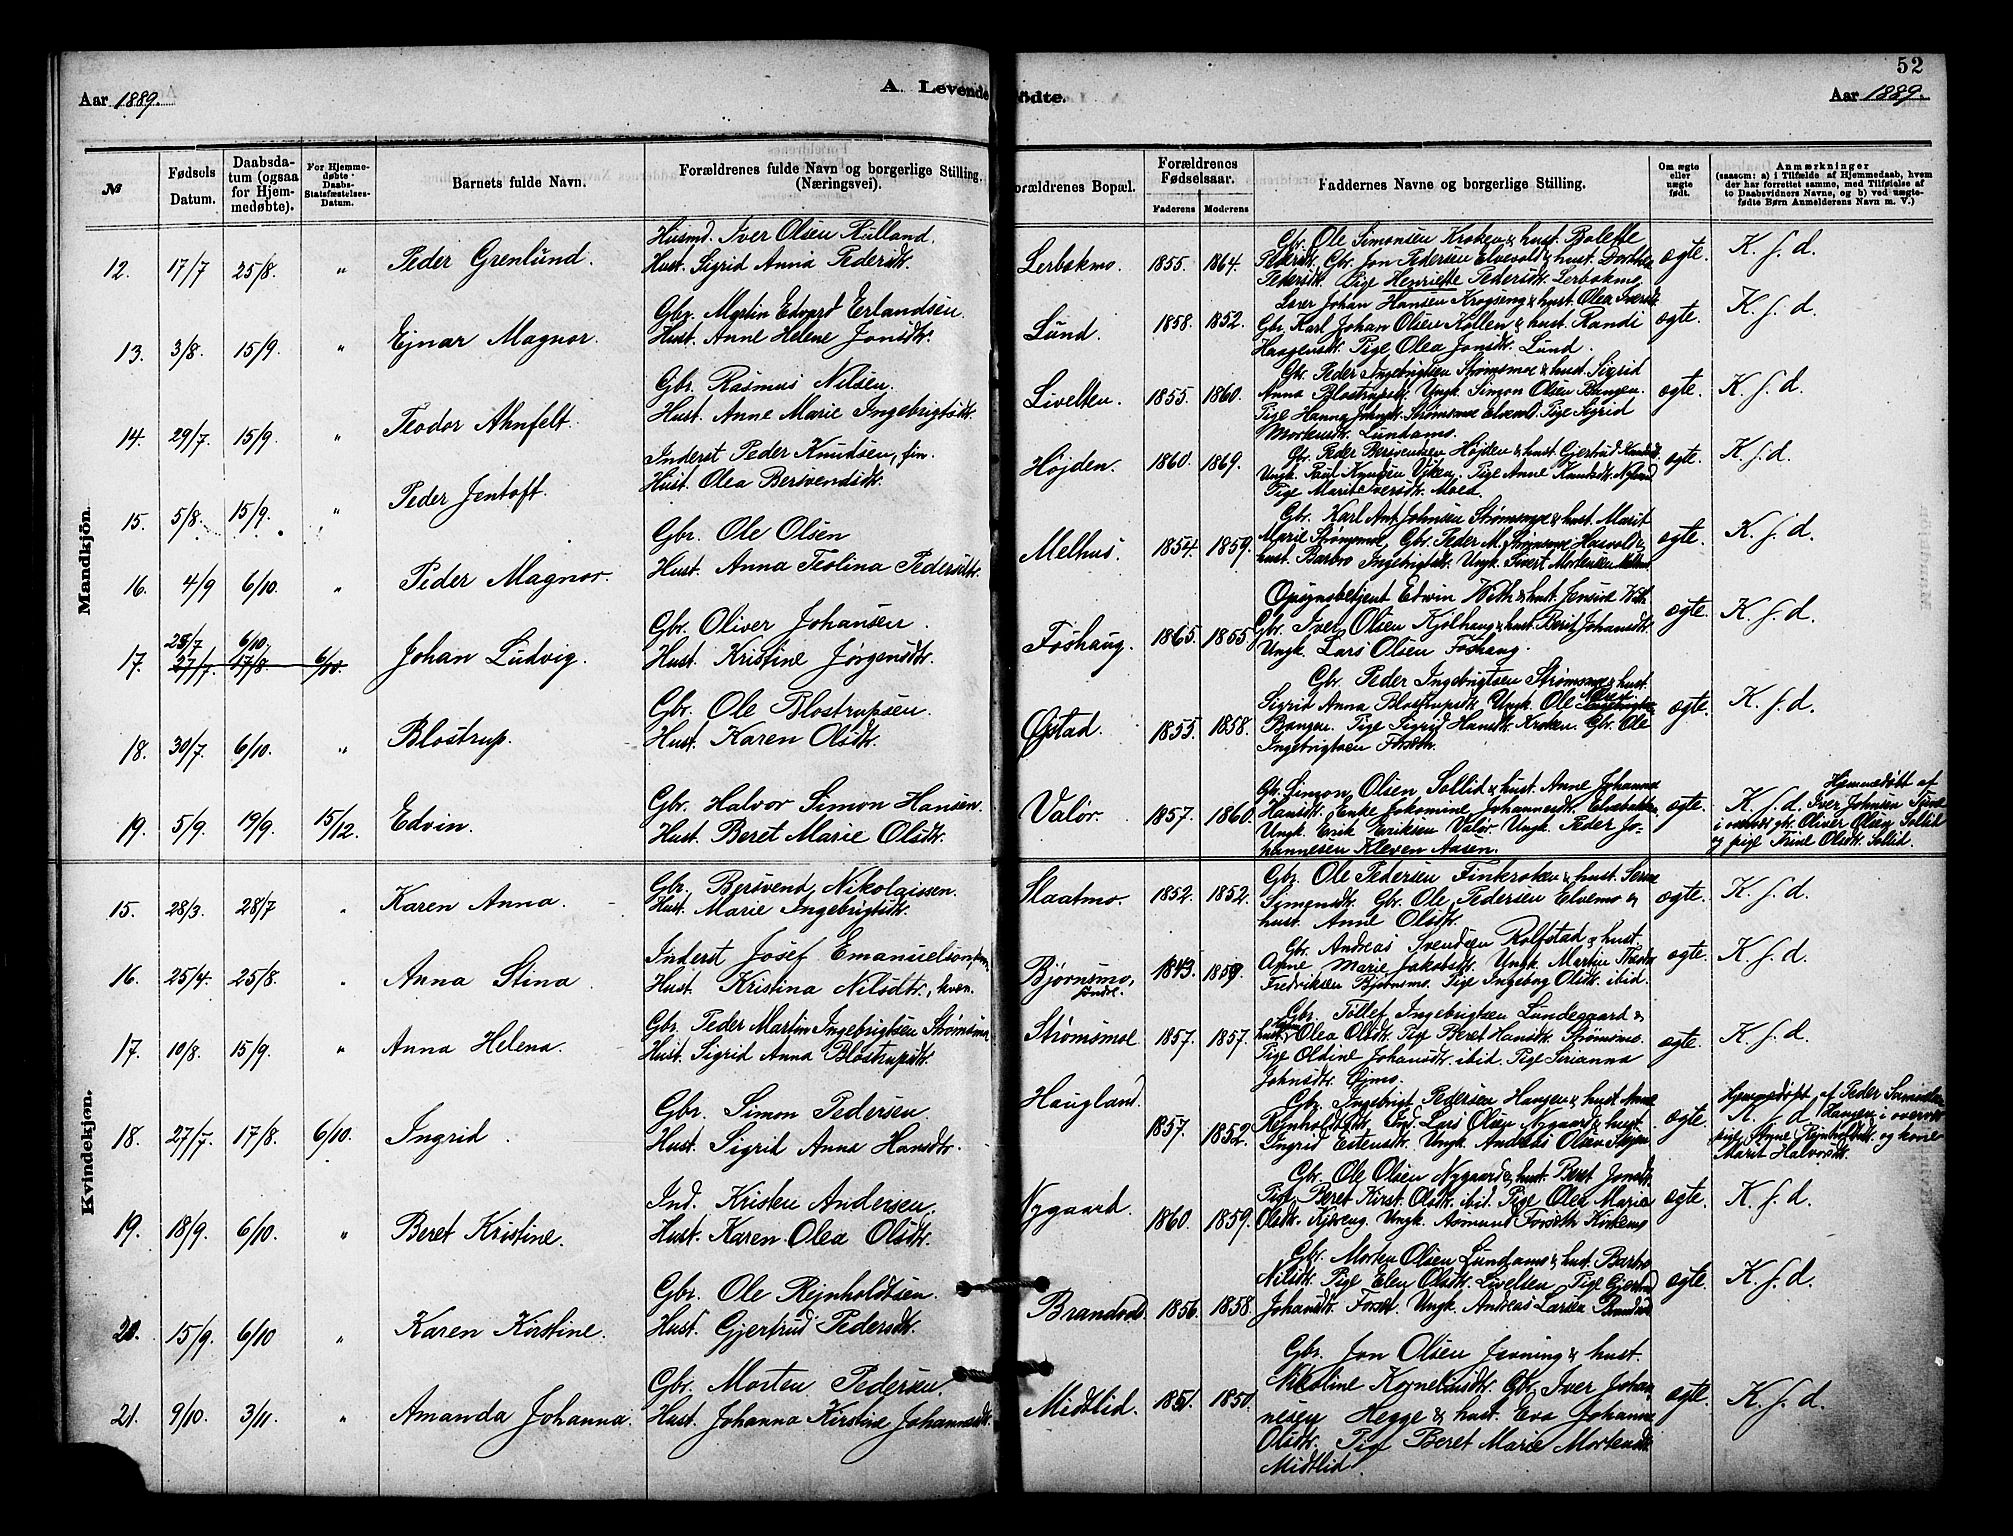 52
Aar 1889.
A. Levende
ødte.
Aar 1889.
№
Fødsels Datum.
Daabsdatum (ogsaa for Hjemmedøbte).
For Hjemmedøbte Daabs-Stadfæstelses-Datum.
Barnets fulde Navn.
Forældrenes fulde Navn og borgerlige Stilling. (Næringsvei).
Forældrenes Bopæl.
Forældrenes Fødselsaar.
Faderens
Moderens
Faddernes Navne og borgerlige Stilling.
Om ægte eller uægte født.
Anmærkninger
(saasom: a) i Tilfælde af Hjemmedaab, hvem
der har forrettet samme, med Tilføielse af
to Daabsvidners Navne, og b) ved uægte-
fødte Børn Anmelderens Navn m. V.)
Mandkjön.
12. 17/7 25/8. „ Peder Grenlund.
Husmd. Iver Olsen Rulland.
Hust. Sigrid Anna Pedersdtr.
Lerbakmo. 1855. 1864.
Gbr. Ole Simonsen Kroken & hust. Bolette
Pedersdtr. Gbr. Jon Pedersen Elvevold & hust. Dorthea
Pedersdtr. Pige Henriette Pedersdtr. Lerbakmo
ægte. K. f. d.
13. 3/8. 15/9. „ Ejnar Magnor.
Gbr. Martin Edvard Erlandsen.
Hust. Anne Helene Jonsdtr.
Lund. 1858. 1852.
Johan Hansen Krogseng & hust. Olea Iversdtr
Gbr. Karl Johan Olsen Kollen & hust. Randi
Haagensdtr. Pige Olea Jonsdtr. Lund.
ægte. K. f. d.
14. 29/7. 15/9. „ Teodor Ahnfelt.
Gbr. Rasmus Nilsen.
Hust. Anne Marie Ingebrigtsdtr.
Livelten. 1855. 1860.
Gbr. Peder Ingebrigtsen Strømsmo & hust. Sigrid
Anna Blostrupsdtr. Ungk. Simon Olsen Bangen.
Pige Hanna Strømsmo Pige Sigrid
Mortensdtr. Lundamo.
ægte. K. f. d.
15. 5/8. 15/9. „ Peder Jentoft.
Inderst Peder Knudsen, fin
Hust. Olea Bersvendsdtr.
Højden. 1860. 1869.
Gbr. Peder Bersvendsen Højden & hust. Gjertrud Knudsdtr.
Ungk. Paul Knudsen Viken, Pige Anne Knudsdtr.
Pige Marit Iversdtr. Moen.
ægte. K. f. d.
16. 4/9 6/10. „ Peder Magnor.
Gbr. Ole Olsen
Hust. Anna Teolina Pedersdtr.
Melhus. 1854. 1859.
Gbr. Karl Ant. Johnsen Strømsmo & hust. Marit
Marie Strømsmo, Gbr. Peder M. Strømsmo &
hust. Barbro Ingebrigtsdtr. Ungk. Sivert Mortensen
ægte. K. f. d.
17. 25/7 27/7. 6/10. 17/8. 6/10. Johan Ludvig.
Gbr. Oliver Johansen.
Hust. Kristine Jørgensdtr.
Foshaug. 1865. 1855.
Opsynsbetjent Edwin With & hust. Jensine With
Gbr. Iver Olsen Kjølhaug & hust. Berit Johansdtr.
Ungk. Lars Olsen Foshaug.
ægte. K. f. d.
18. 30/7. 6/10. „ Blostrup.
Gbr. Ole Blostrupsen.
Hust. Karen Olsdtr.
Øistad. 1855. 1858.
Gbr. Peder Ingebrigtsen Strømsmo & hust.
Sigrid Anna Blostrupsdtr. Ungk. Ole
Bangen. Pige Sigrid Hansdtr. Kroken. Gbr. Ole
Ingebrigtsen Forseth.
ægte. K. f. d.
19. 5/9. 19/9. 15/12. Edvin.
Gbr. Halvor Simon Hansen.
Hust. Beret Marie Olsdtr.
Valør. 1857. 1860.
Gbr. Simon Olsen Sollid & hust. Anne Johanna
Hansdtr. Enke Jakomine Johannesdtr. Elvebakken
Ungk. Erik Eriksen Valør. Ungk. Peder Jo-
hannesen Kleven Aasen.
ægte. Hjemmedøbt af
K. f. d. Iver Johnsen
i overvær gbr. Oliver Olsen Sollid
og pige Trine Olsdtr. Sollid.
Kvindekjøn.
15. 28/3. 28/7 „ Karen Anna.
Gbr. Bersvend Nikolaissen.
Hust. Marie Ingebrigtsdtr.
Slaatmo. 1852. 1852.
Gbr. Ole Pedersen Finkroken & hust.
Simensdtr. Gbr. Ole Pedersen Elvemo &
hust. Anne Olsdtr.
ægte. K. f. d.
16. 25/4. 25/8. „ Anna Stina.
Inderst Josef Emanuelson,
Hust. Kristina Nilsdtr., kvæn.
Bjørnsmo, søndre. 1843. 1859.
Gbr. Andreas Svendsen Rolfstad & hust.
Anne Marie Jakobsdtr. Ungk. Martin
Fredriksen Bjørnsmo. Pige Ingeborg Olsdtr. ibid.
ægte. K. f. d.
17. 10/8. 15/9. „ Anna Helena.
Gbr. Peder Martin Ingebrigtsen Strømsmo
Hust. Sigrid Anna Blostrupsdtr.
Strømsmoe 1857. 1857.
Gbr. Tollef Ingebrigtsen Lundegaard &
hust. Olea Olsdtr. Pige Beret Hansdtr. Strømsmo
Pige Oldine Johansdtr. ibid. Pige Serianna
Johnsdtr. Øjmo.
ægte. K. f. d.
18. 27/7. 17/8. 6/10. Ingrid.
Gbr. Simon Pedersen.
Hust. Sigrid Anna Hansdtr.
Haugland. 1857. 1852.
Gbr. Ingebrigt Pedersen Haugen & hust. Anne
Reinholdtsdtr. Ind. Lars Olsen Nygaard & hust.
Ingrid Estensdtr. Ungk. Andreas Olsen
ægte. Hjemmedøbt af Peder
K. f. d. Haugen i overvær
pige Anne Rejnholdtsdtr. og kone
Marit Halvorsdtr.
19. 18/9. 6/10. „ Beret Kristine.
Ind. Kristen Andersen.
Hust. Karen Olea Olsdtr.
Nygaard. 1860. 1859.
Gbr. Ole Olsen Nygaard & hust. Beret Jonsdtr.
Pige Beret Kirst. Olsdtr. ibid. Pige Olea Marie
Olsdtr. Kjæreng. Ungk. Asmund Forseth Kirkemo
ægte. K. f. d.
20. 15/9. 6/10 „ Karen Kirstine.
Gbr. Ole Rejnholdtsen.
Hust. Gjertrud Pedersdtr.
Brandvold 1856. 1858.
Gbr. Morten Olsen Lundamo & hust. Barbro
Nilsdtr. Pige Elen Olsdtr. Livelten, Pige Gjertrud
Johansdtr. Forset. Ungk. Andreas Larsen Brandvold
ægte. K. f. d.
21. 9/10. 3/11. „ Amanda Johanna.
Gbr. Morten Pedersen.
Hust. Johanna Kirstine Johannesdtr.
Midtlid. 1851. 1850.
Gbr. Jon Olsen Jevning & hust.
Nikoline Korneliusdtr. Gbr. Iver Johan-
nesen Hegge & hust. Eva Johanna
Olsdtr. Pige Beret Marie Mortensdtr.
Midtlid.
ægte. K. f. d.